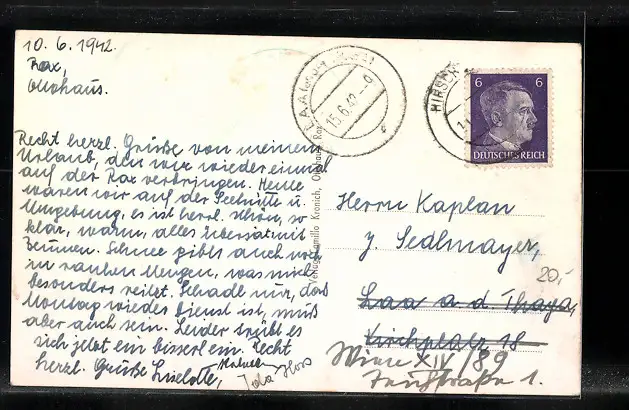 10. 6. 1942.
Rax,
Ottohaus.
Recht herzl. Grüße von meinem
Urlaub, den wir wieder einmal
auf der Rax verbringen. Heute
waren wir auf der Seehütte u.
Umgebung, es ist herrl. schön, so
klar, warm, alles übersät mit
Schnee gibts auch noch
in rauhen Mengen, was mich
besonders reizt. Schade nur, daß
Montag wieder Dienst ist, muß
aber auch sein. Leider trübt es
sich jetzt ein bisserl ein. Recht
herzl. Grüße Liselotte,
Verlag Camillo Kronich, Ottohaus, Rax
LAA
15.6.42
HIRSCH
6 6
DEUTSCHES REICH
Herrn Kaplan
J. Sedlmayer,
20,-
Laa a d Thaya,
Kirchplatz 18
Wien XIV/89
1.